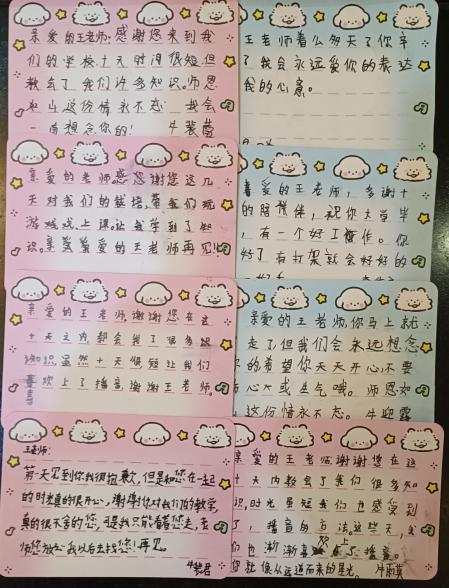 亲爱的王老师:感谢您来到我
们的学校,十天时间很短,但
教会了我们许多知识。师恩
如山这份情永不忘 我会
一直想念你的!
王老师着么多天了你辛
了我会永远爱你的表达
我的心意。
亲爱的老师感恩谢您这几
天对我们的 带我们玩
游戏戏,上课。让我学到了知
识。亲爱的王老师再见!
喜爱的王老师,多谢十
的陪伴,祝你大学毕
,有一个好工作。你
好了 有打架就会好好的
亲爱的王老师,谢谢您在这
十天之内,都会我了很多识
知识虽然十天很短让我们
喜欢上了播音,谢谢王老师。
亲爱的王老师,你马上就
走了但我们会永远想念
的希望你天天开心不要
心 或生气哦。师恩如
这份情永不忘。牛迎露
王老师:
第一天见到你我很抱歉,但是和您在一起
的时光真的很开心,谢谢你对我们的教学,
真的很不舍的您,可是我只能看着您走,老
师您放心我以后去找您!再见。
亲爱的王老师,谢谢您在这
十天内教会了我们很多知
识,时光虽短我们也感受到
了,播音的方法。这些天,我
们也渐渐喜欢上了播音。
你就像从远道而来的星光。牛雨萱